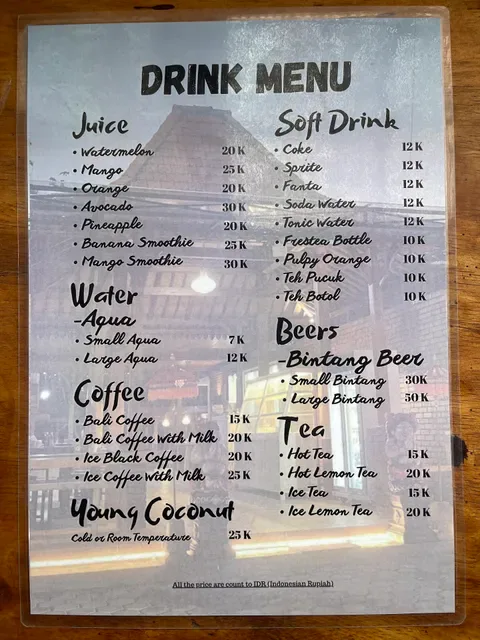 DRINK MENU
Juice
• Watermelon 20 K
• Mango 25 K
• Orange 20 K
• Avocado 30 K
• Pineapple 20 K
• Banana Smoothie 25 K
• Mango Smoothie 30 K
Water
-Aqua
• Small Aqua 7 K
• Large Aqua 12 K
Coffee
• Bali Coffee 15 K
• Bali Coffee With Milk 20 K
• Ice Black Coffee 20 K
• Ice Coffee With Milk 25 K
Young Coconut
Cold or Room Temperature 25 K
Soft Drink
• Coke 12 K
• Sprite 12 K
• Fanta 12 K
• Soda Water 12 K
• Tonic Water 12 K
• Frestea Bottle 10 K
• Pulpy Orange 10 K
• Teh Pucuk 10 K
• Teh Botol 10 K
Beers
-Bintang Beer
• Small Bintang 30K
• Large Bintang 50 K
Tea
• Hot Tea 15 K
• Hot Lemon Tea 20 K
• Ice Tea 15 K
• Ice Lemon Tea 20 K
All the price are count to IDR (Indonesian Rupiah)